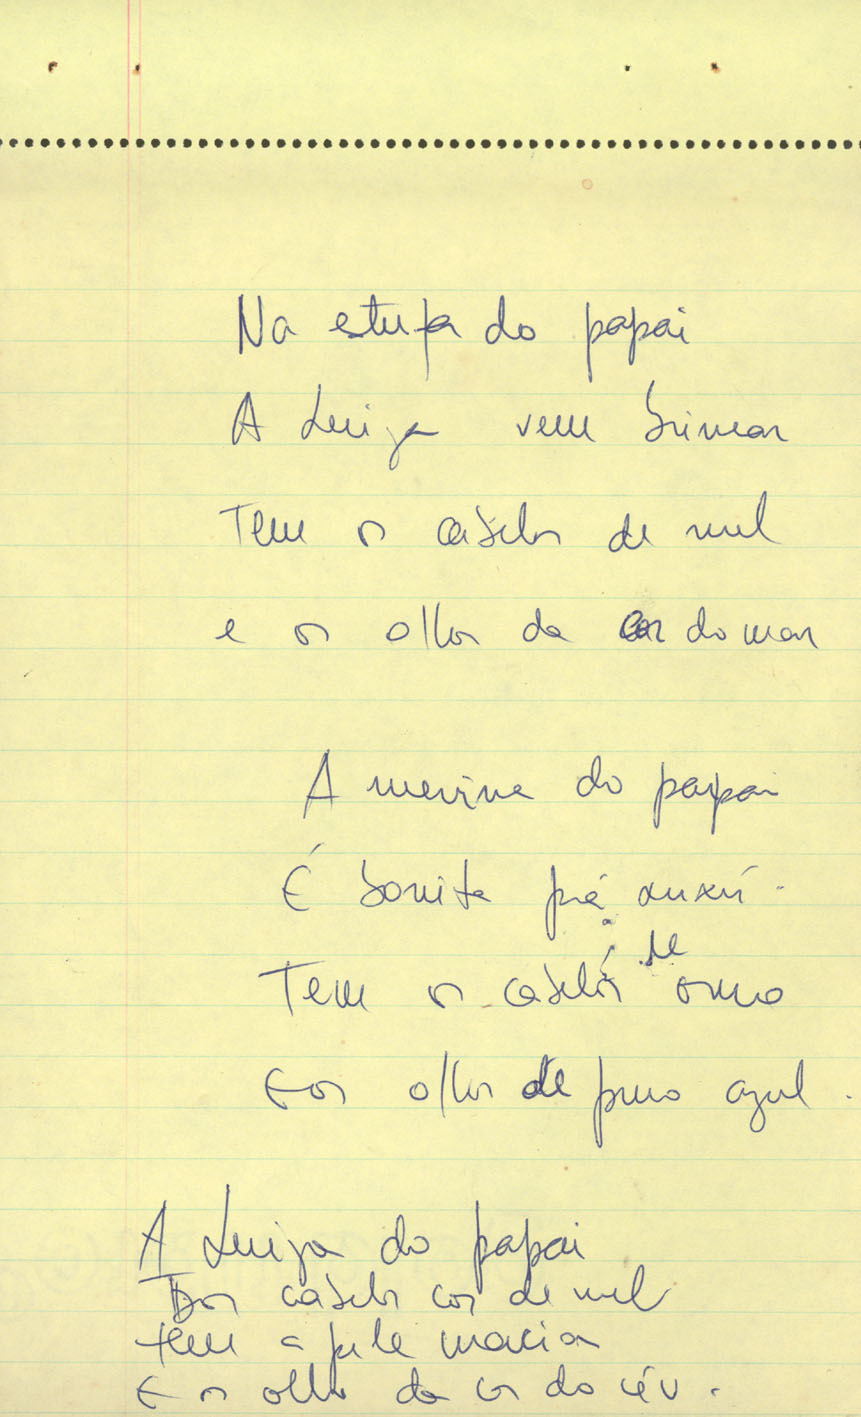 Na estufa do papai
A Luiza vem brincar
Tem os cabelos de mel
e os olhos da cor do mar
A menina do papai
É bonita prá xuxú.
Tem os cabelos de ouro
E os olhos de puro azul.
A Luiza do papai
Dos cabelos cor de mel
Tem a pele macia
E os olhos da cor do céu.